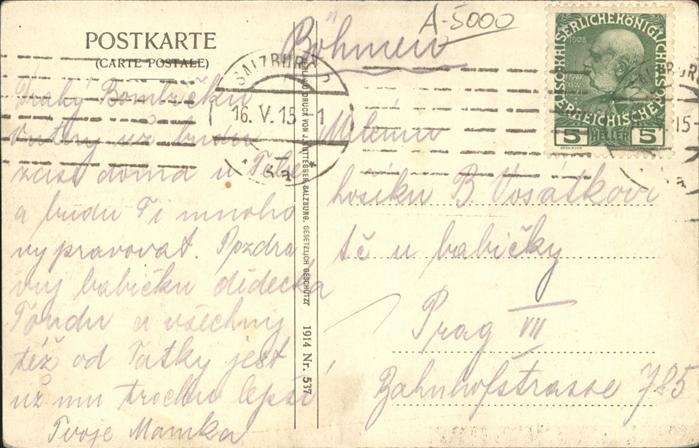 POSTKARTE
(CARTE POSTALE)
Böhmen
A-5000
SALZBURG
16. V. 15 - 1
KAISERLICHE KÖNIGLICHE ÖSTERREICHISCHE
5 HELLER 5
Drahý
už budu
zase doma u Tebe
a budu Ti mnoho
vypravovat. Pozdra
vuj babičku dědečka
Tondu a všechny
též od Tatky jest
už mu trochu lepší
Tvoje Mamka
SALZBURG. GESETZLICH GESCHÜTZT 1914 Nr. 537
hošíku B. Vosátkovi
u babičky
Prag VII
Bahnhofstrasse 785